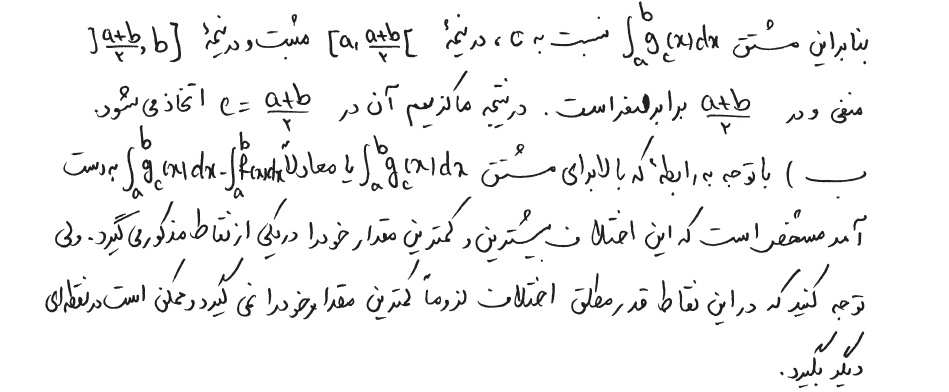 بنابراین مشتق ∫ₐᵇ g_c(x)dx نسبت به c، در نیمهٔ [a, (a+b)/۲[ مثبت و در نیمهٔ ](a+b)/۲, b]
منفی و در (a+b)/۲ برابر صفر است. در نتیجه ماکزیمم آن در c = (a+b)/۲ اتخاذ می‌شود.
ب) با توجه به رابطه‌ٔ که بالا برای مشتق ∫ₐᵇ g_c(x)dx یا معادلاً ∫ₐᵇ g_c(x)dx - ∫ₐᵇ f(x)dx به دست
آمد مشخص است که این اختلاف بیشترین و کمترین مقدار خود را در یکی از نقاط مذکور می‌گیرد. ولی
توجه کنید که در این نقاط قدر مطلق اختلاف لزوماً کمترین مقدار خود را نمی‌گیرد و ممکن است در نقطه‌ای
دیگر بگیرد.